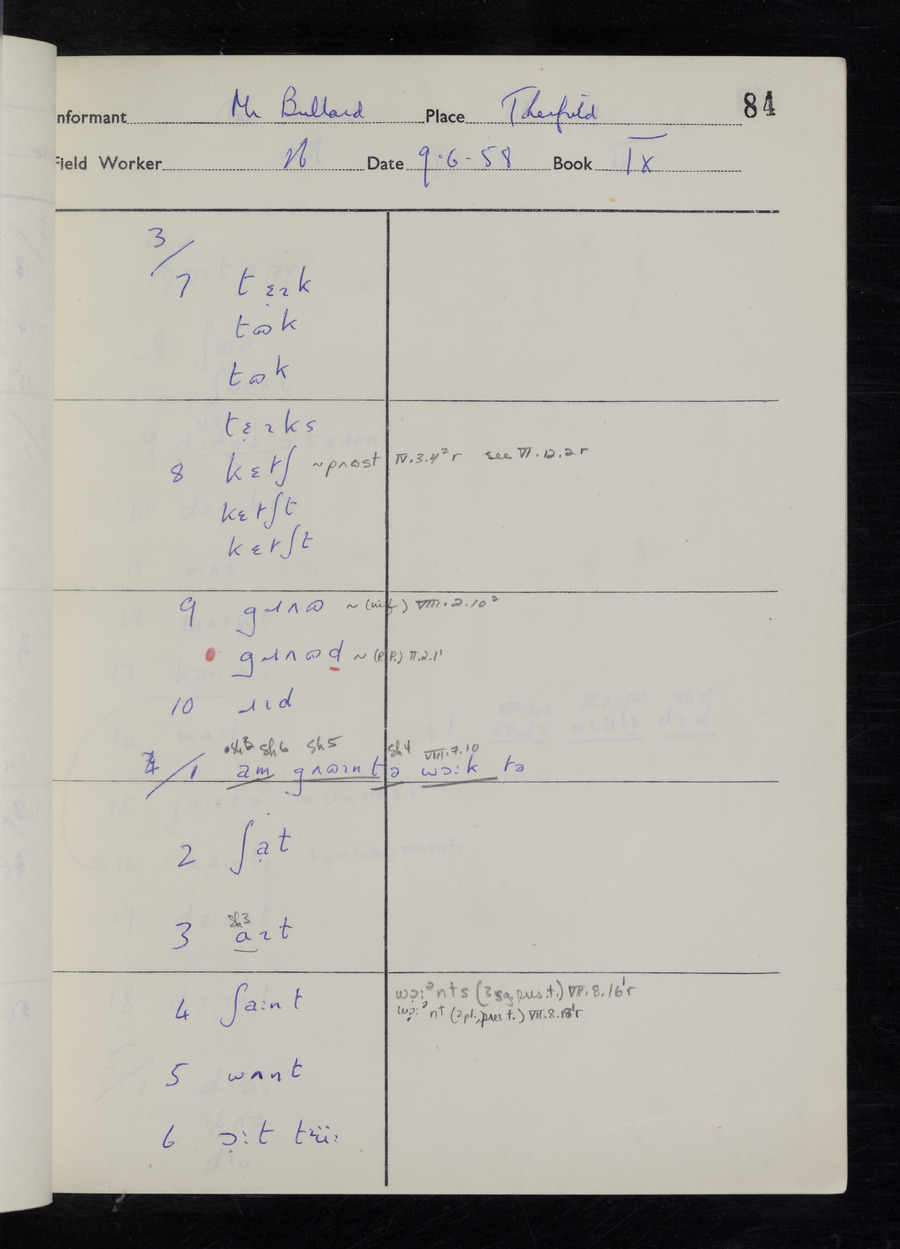 nformant Mr Bullard Place Therfield 84
Field Worker Date 9·6·58 Book IX
3/
7 tɛɪk
tɷk
tɷk
tɛɪks
8 kɛtʃ ~pɹɷst IV.3.4² r see VI.12.2 r
kɛtʃt
kɛtʃt
9 gɹʌɷ ~ (inf) VIII.2.10²
gɹʌɷd ~ (P.P.) II.2.1¹
10 ɹɪd
sh3 sh6 sh5 sh4 VIII.7.10
4/1 am gʌɷɪnt ə wɔːk tə
2 ʃat
3 sh3 aɪt
4 ʃaːnt wɔːᵊnts (3sg. pres. t.) VII.8.16¹ r
wɔːᵊnt (2pl., pres t.) VII.8.13¹ r
5 wʌnt
6 ɔːt tʏiː